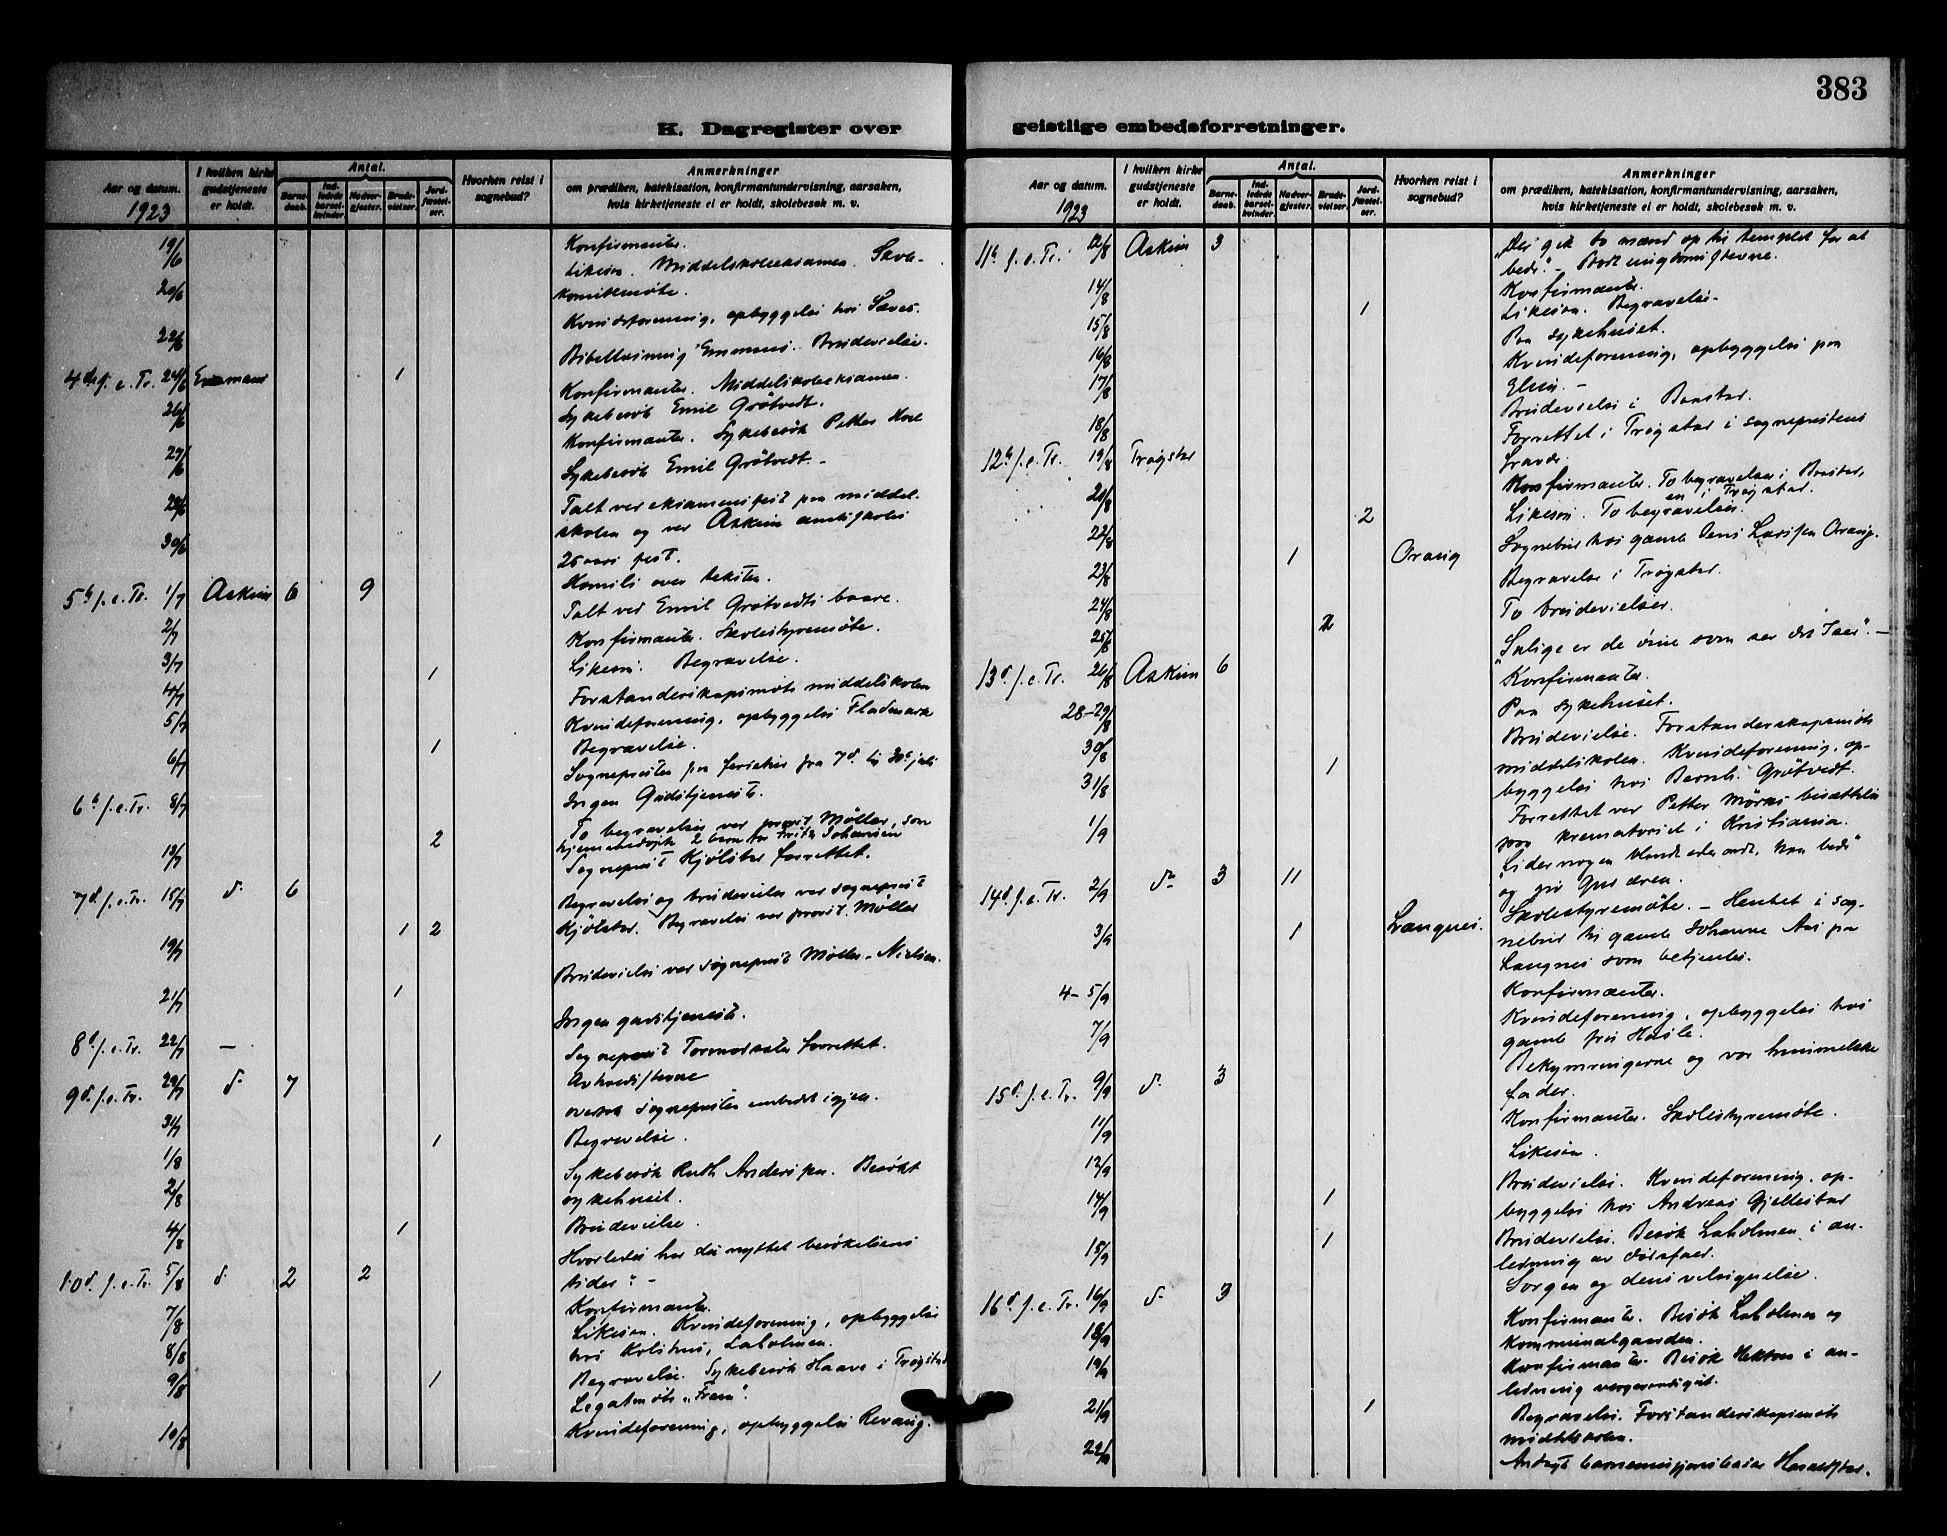 383
K. Dagregister over
geistlige embedsforretninger.
Aar og datum.
1923
I hvilken kirke
gudstjeneste
er holdt.
Antal.
Barne-
daab.
Ind-
ledede
barsel-
kvinder.
Nadver-
gjester.
Brude-
vielser.
Jord-
fæstel-
ser.
Hvorhen reist i
sognebud?
Anmerkninger
om prædiken, katekisation, konfirmantundervisning, aarsaken,
hvis kirketjeneste ei er holdt, skolebesøk m. v.
19/6 Konfirmanter.
Likesaa. Middelskoleeksamen. Skole-
20/6 komitemøte.
Kvindeforening, opbyggelse hos
22/6 Bibellæsning Emmaus. Brudevielse.
4de s. e. Tr. 24/6 1
Konfirmanter. Middelskoleeksamen.
26/6 Sykebesøk Emil Grøtvedt.
Konfirmanter. Sykebesøk Petter
27/6 Sykebesøk Emil Grøtvedt. -
28/6 Talt ved eksamensfest paa middel-
skolen og ved Askim amtsskoles
30/6 25 aars fest.
5te s. e. Tr. 1/7 Askim 6 9 Homili over teksten.
2/7 Talt ved Emil Grøtvedts baare.
Konfirmanter. Skolestyremøte.
3/7 Likesaa. Begravelse. 1
4/7 Forstanderskapsmøte middelskolen
5/7 Kvindeforening, opbyggelse Fladmark
6/7 Begravelse. 1
Sognepresten paa ferietur fra 7de til 30te juli
6te s. e. Tr. 8/7 Ingen Gudstjeneste.
To begravelser ved provst Møller, som
13/7 hjemmedøpte 2 barn for Fritz Johansen 2
Sogneprest Kjølstad forrettet.
7de s. e. Tr. 15/7 do 6
Begravelse og brudevielse ved sogneprest
Kjølstad. Begravelse ved provst Møller 1 2
19/7
Brudevielse ved sogneprest Møller-Nielsen.
21/7 1
Ingen gudstjeneste.
8de s. e. Tr. 22/7 —
Sogneprest Tormodsæter forrettet.
9de s. e. Tr. 29/7 do 7
overtok sognepresten embedet igjen.
31/7
Begravelse. 1
1/8 Sykebesøk Ruth Andersen. Besøkt
2/8 sykehuset.
4/8 Brudevielse. 1
Hvorledes har du nyttet besøkelsens
10de s. e. Tr. 5/8 do 2 2 tider? -
7/8 Konfirmanter.
Likesaa. Kvindeforening, opbyggelse
8/8 hos Kolshus, Labolmen.
9/8 Begravelse. Sykebesøk Haave i Trøgstad 1
Legatmøte "Fram".
10/8 Kvindeforening, opbyggelse Revaug.
Aar og datum.
1923
I hvilken kirke
gudstjeneste
er holdt.
Antal.
Barne-
daab.
Ind-
ledede
barsel-
kvinder.
Nadver-
gjester.
Brude-
vielser.
Jord-
fæstel-
ser.
Hvorhen reist i
sognebud?
Anmerkninger
om prædiken, katekisation, konfirmantundervisning, aarsaken,
hvis kirketjeneste ei er holdt, skolebesøk m. v.
11te s. e. Tr. 12/8 Askim 3 "Der gik to mænd op til templet for at
bede". - ungdomsstevne.
14/8 Konfirmanter.
Likesaa. Begravelse. 1
15/8 Paa sykehuset.
16/8 Kvindeforening, opbyggelse paa
17/8 Elvin. -
Brudevielse i Baastad.
18/8 Forrettet i Trøgstad i sogneprestens
12te s. e. Tr. 19/8 Trøgstad fravær.
20/8 Konfirmanter. To begravelser i Baastad,
en i Trøgstad.
Likesaa. To begravelser. 2
22/8 Sognebud hos gamle Jens Larssen Oraug. 1 Oraug
23/8 Begravelse i Trøgstad.
24/8 To brudevielser. 2
25/8
"Salige er de øine som ser det I ser". —
13de s. e. Tr. 26/8 Askim 6 Konfirmanter.
28-29/8 Paa sykehuset.
30/8 Brudevielse. Forstanderskapsmøte
middelskolen. Kvindeforening, op- 1
31/8 byggelse hos Bernh. Grøtvedt.
Forrettet ved Petter Mørks bisættelse
1/9 paa krematoriet i Kristiania.
"Lider nogen blandt eder ondt, han bede"
14de s. e. Tr. 2/9 do 3 11 og giv Gud æren.
Skolestyremøte. - Hentet i sog-
3/9 1 Langnes. nebud til gamle Johanne Aas paa
Langnes som betjentes.
4-5/9 Konfirmanter.
Kvindeforening, opbyggelse hos
7/9 gamle fru Hasle.
Bekymringerne og vor himmelske
15de s. e. Tr. 9/9 do 3 fader.
11/9 Konfirmanter. Skolestyremøte.
12/9 Likesaa.
14/9 Brudevielse. Kvindeforening, op- 1
byggelse hos Andreas Gjellestad
15/9 Brudevielse. Besøk Labolmen i an- 1
ledning av dødsfald.
16de s. e. Tr. 16/9 do 3 Sorgen og dens velsignelse.
18/9 Konfirmanter. Besøk Labolmen og
kommunalgaarden.
19/9 Konfirmanter. Besøk i an-
ledning
21/9 Begravelse. Forstanderskapsmøte 1
middelskolen.
22/9